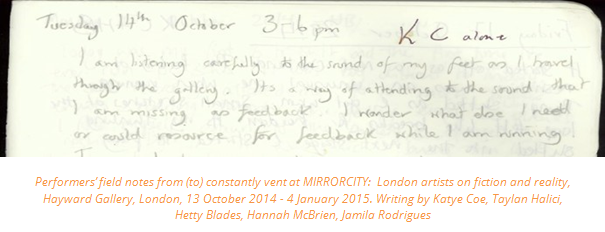 Tuesday 14th October 3-6pm KC alone
I am listening carefully to the sound of my feet as I travel
through the gallery. Its a way of attending to the sound that
I am missing as feedback. I wonder what else I need
or could resource for feedback while I am running.
Performers' field notes from (to) constantly vent at MIRRORCITY: London artists on fiction and reality,
Hayward Gallery, London, 13 October 2014 - 4 January 2015. Writing by Katye Coe, Taylan Halici,
Hetty Blades, Hannah McBrien, Jamila Rodrigues